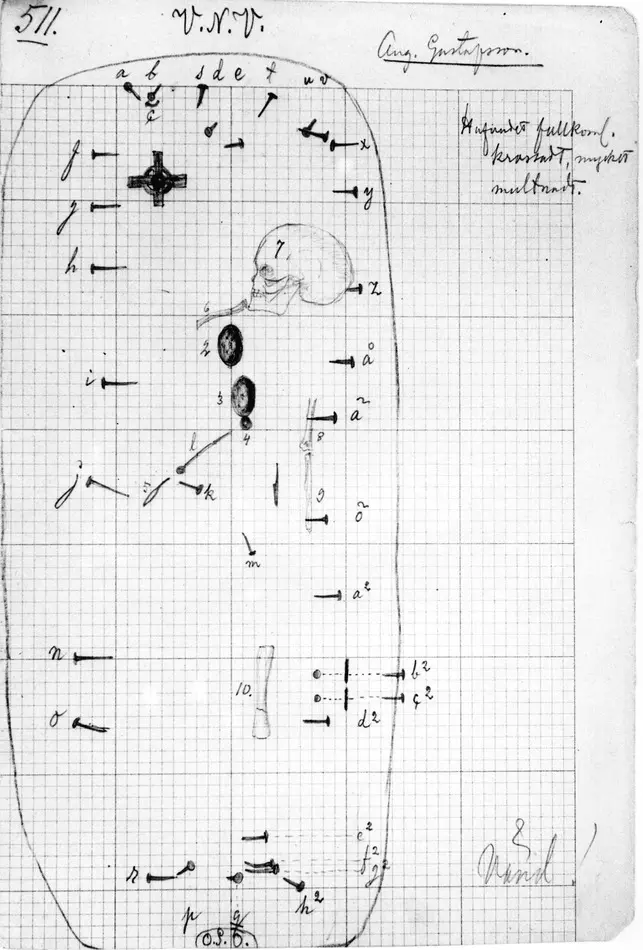 511.
V. N. V.
Aug. Gustafsson.
a b s d e t u v
c
f x
Hufvudet fullkoml.
krossadt, mycket
multnadt.
g y
h z
7.
6
2 å
i
3 a
4 8
l
j 5 k
9 ö
m
a²
n b²
10. c²
o d²
e²
f²
g²
r h²
p q
O.S.O.
8
Vänd